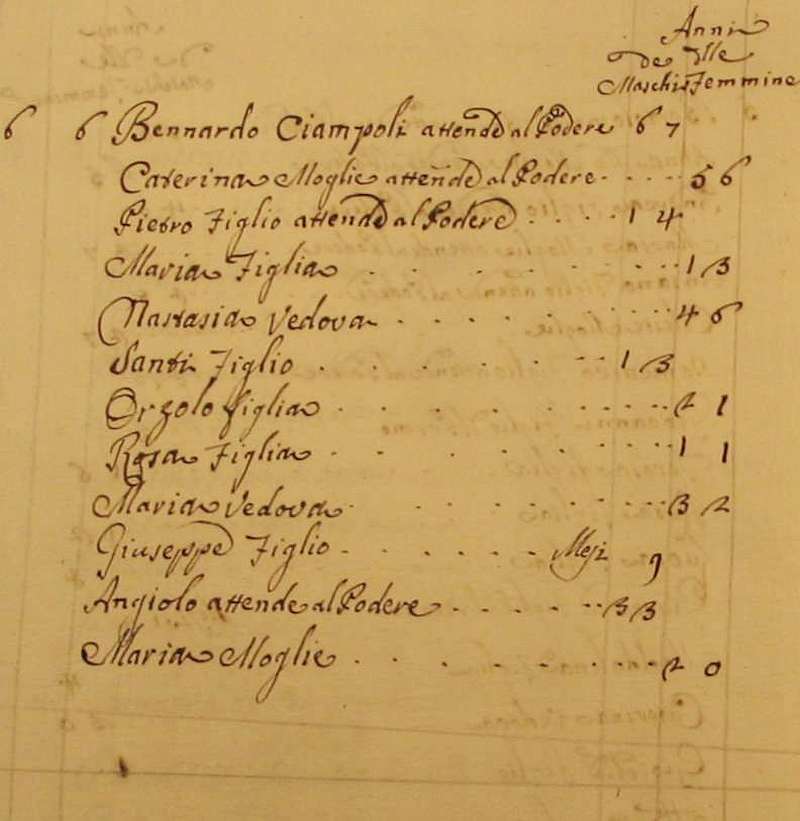 Anni
de lle
Maschi Femmine
6 6 Bennardo Ciampoli attende al Podere 67
Caterina Moglie attende al Podere . . . . 56
Pietro Figlio attende al Podere . . . . 14
Maria Figlia . . . . . . . 13
Nastasia Vedova . . . . . . . . 46
Santi Figlio . . . . . . 13
Orsolo figlia . . . . . . . . 21
Rosa Figlia . . . . . . . . 11
Maria Vedova . . . . . . . . 32
Giuseppe Figlio . . . . . . Mesi 9
Angiolo attende al Podere . . . . . . 33
Maria Moglie . . . . . . . . . 20